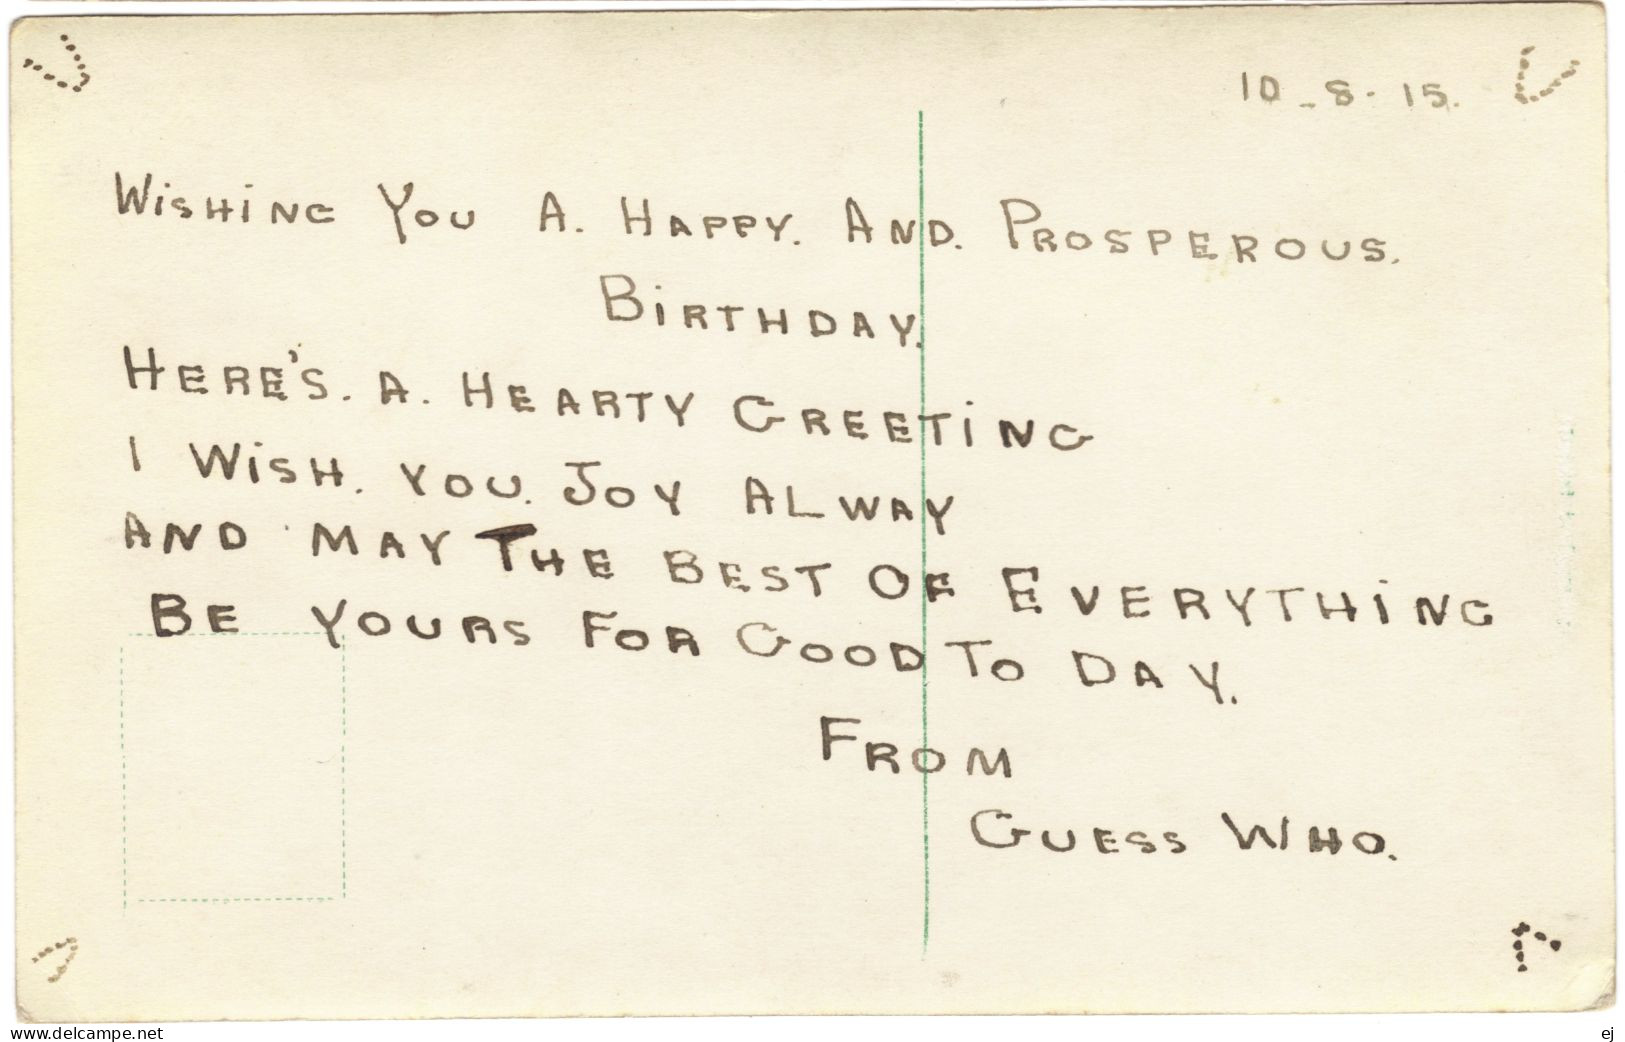 10-8-15.
WiSHiNG YOU A. HAPPY. AND. PROSPEROUS.
BiRTHDAY.
HERE'S. A. HEARTY GREETiNG
I WiSH. YOU. JOY ALWAY
AND MAY THE BEST OF EVERYTHiNG
BE YOURS FOR GOOD TO DAY.
FROM
GUESS WHO.
www.delcampe.net
ej